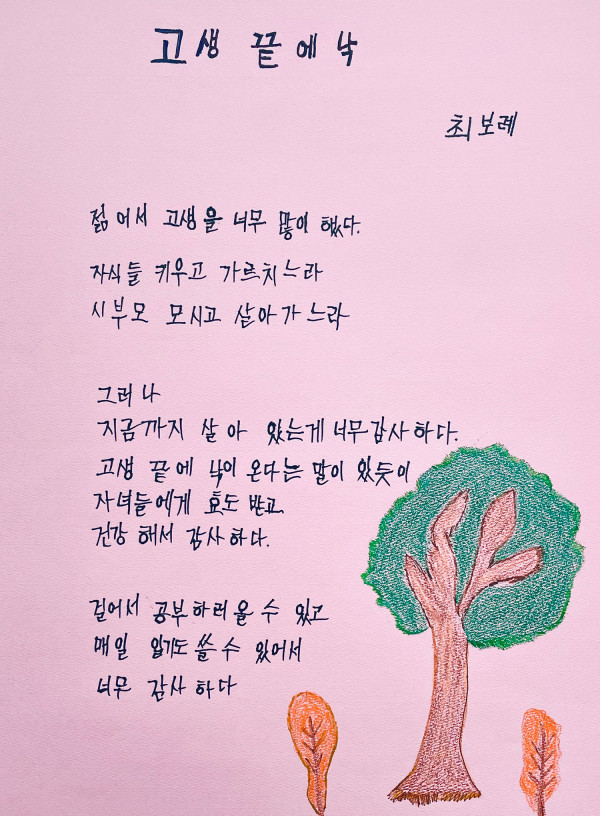 고생 끝에 낙
최보례
젊어서 고생을 너무 많이 했다.
자식들 키우고 가르치느라
시부모 모시고 살아가느라
그러나
지금까지 살아 있는게 너무 감사하다.
고생 끝에 낙이 온다는 말이 있듯이
자녀들에게 효도 받고
건강 해서 감사하다.
걸어서 공부하러 올 수 있고
매일 일기도 쓸 수 있어서
너무 감사하다